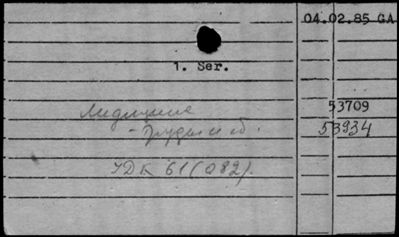 04.02.85 GA
1. Ser.
53709
Медицина
53934
- Труды и сб.
УДК 61(082).